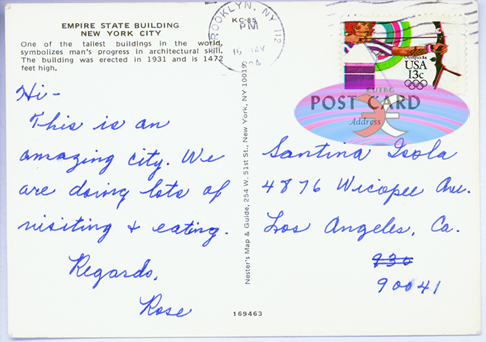 EMPIRE STATE BUILDING
NEW YORK CITY
One of the tallest buildings in the world,
symbolizes man's progress in architectural skill.
The building was erected in 1931 and is 1472
feet high.
Hi-
This is an
amazing city. We
are doing lots of
visiting & eating.
Regards,
Rose
KC-85
BROOKLYN, NY 112
PM
15
USA
13c
POST CARD
Address
Santina Isola
4876 Wicopee Ave.
Los Angeles, Ca.
90041
Nester's Map & Guide, 254 W. 51st St., New York, NY 10019
169463